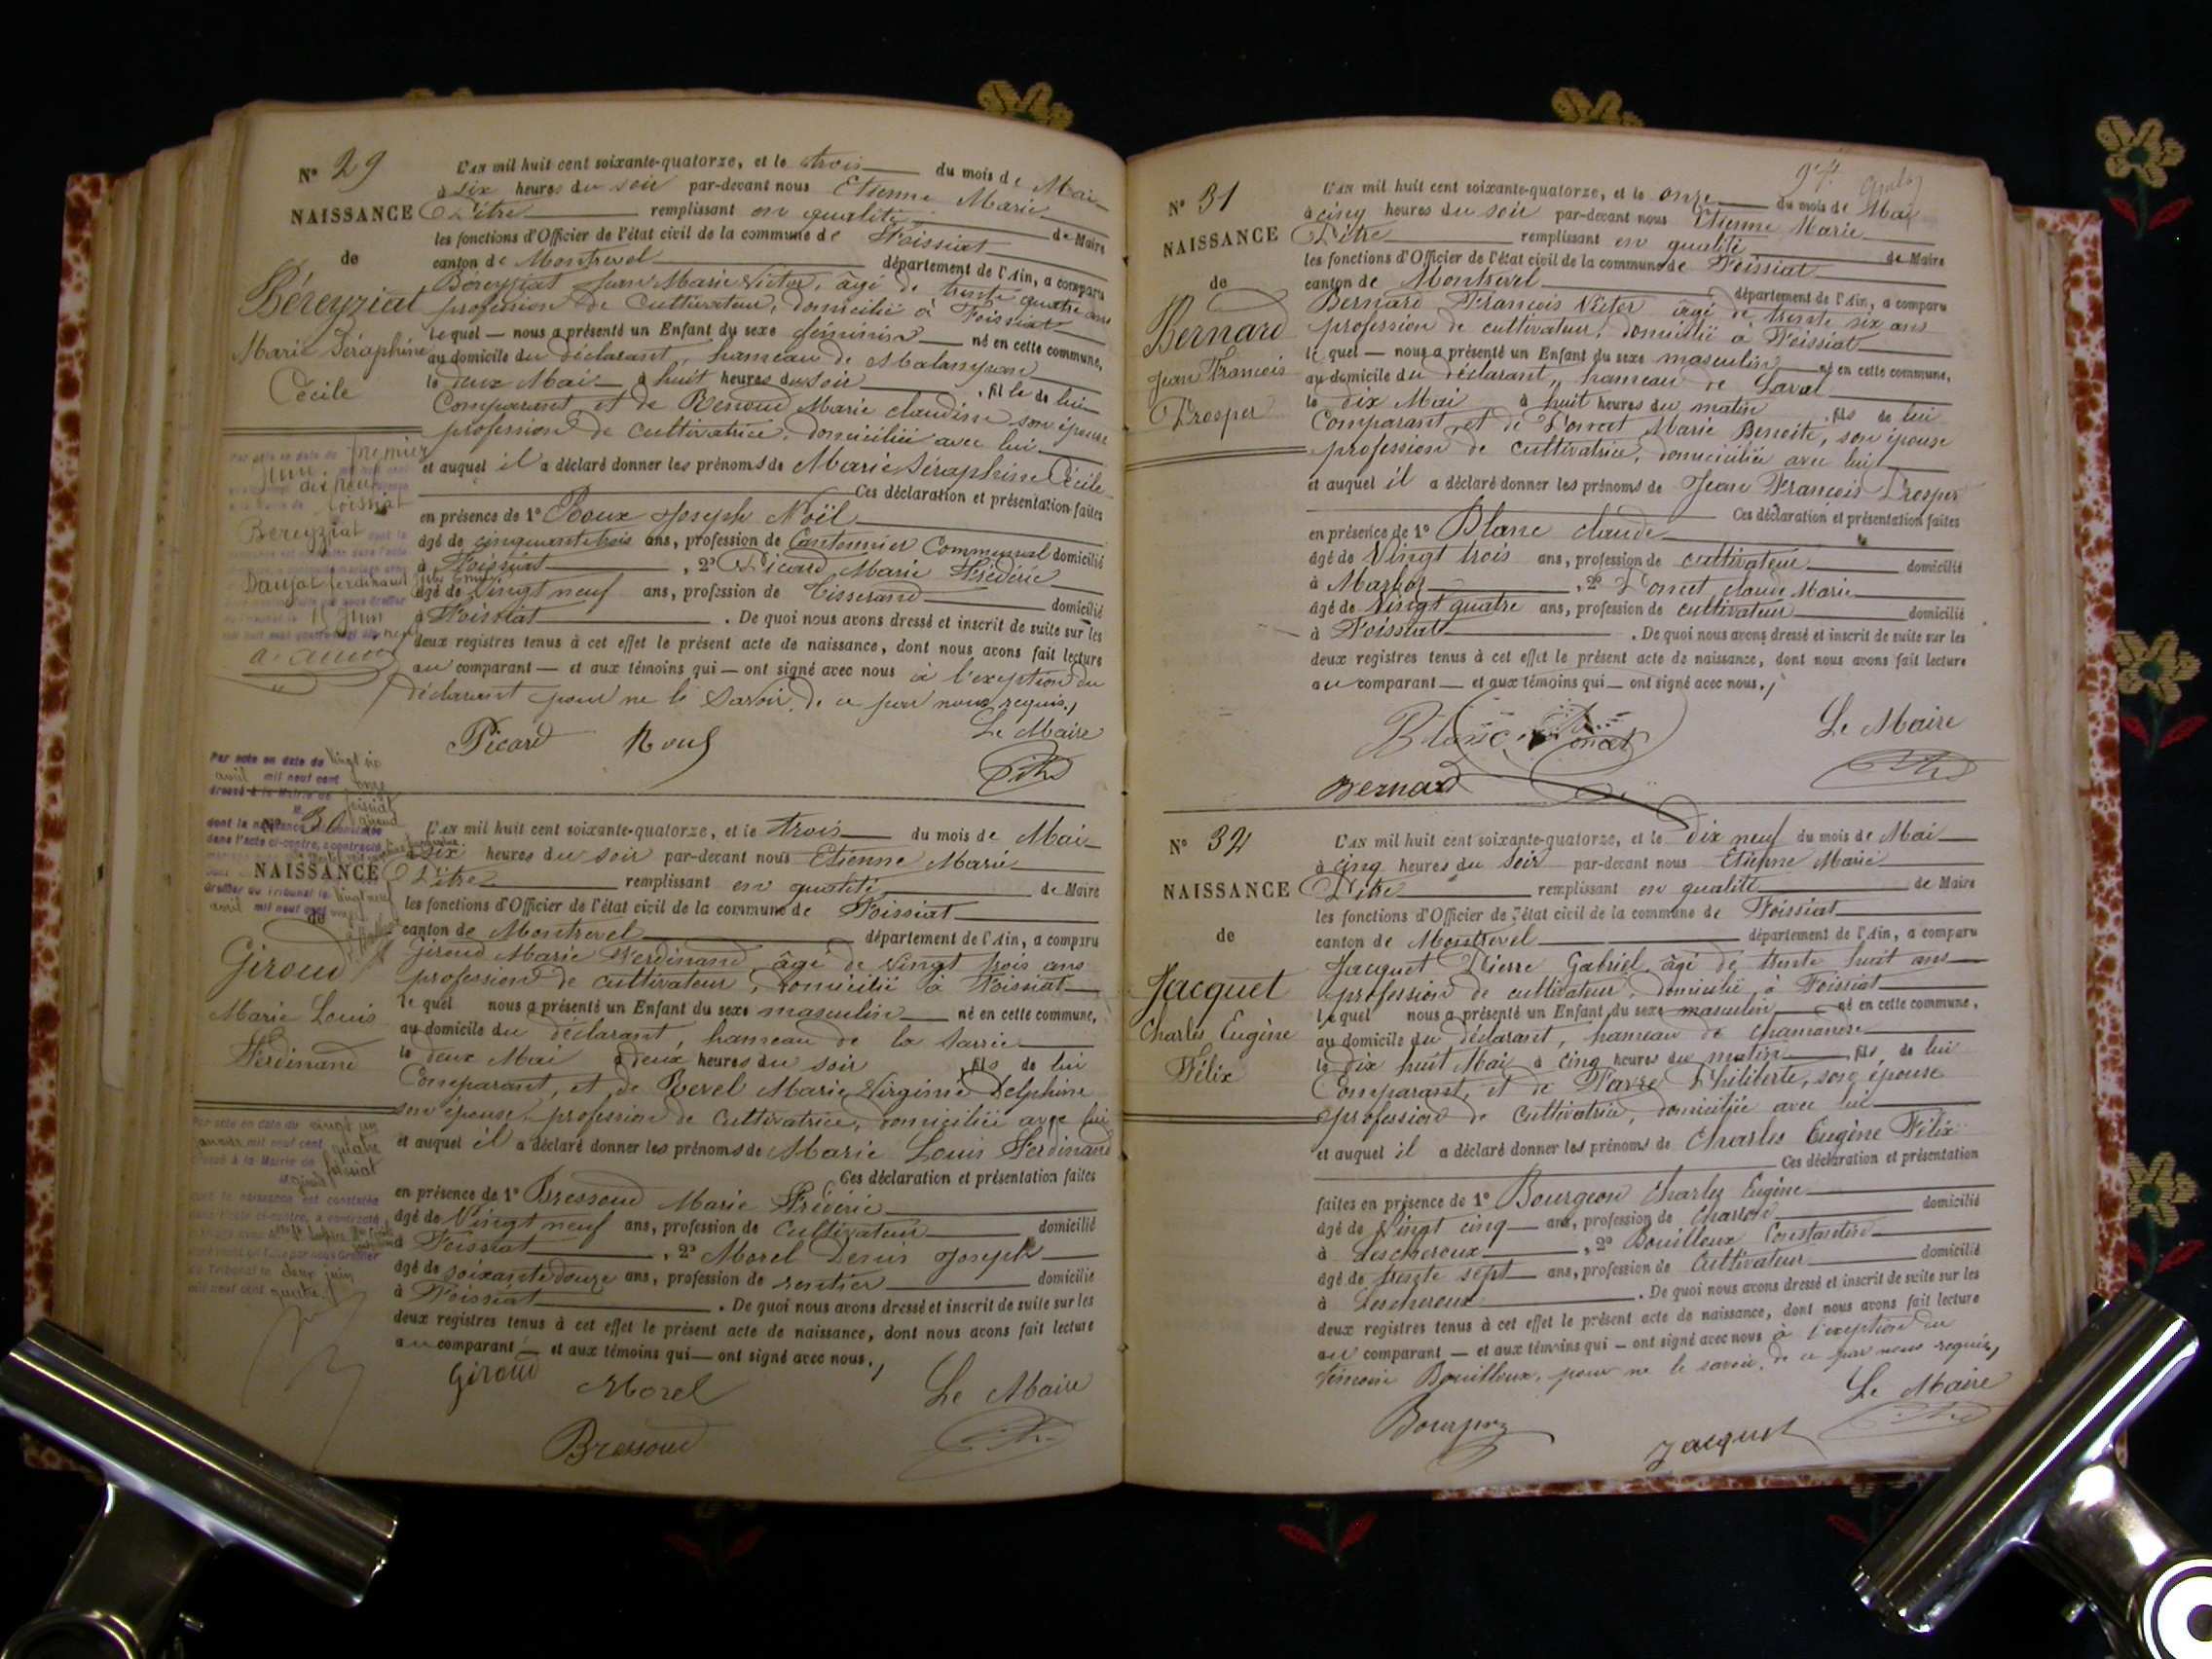 N° 29
NAISSANCE
de
Béreyziat
Marie Séraphine
Cécile
L'AN mil huit cent soixante-quatorze, et le trois du mois de Mai
à six heures du soir par-devant nous Etienne Marie
Pitre remplissant en qualité de Maire
les fonctions d'Officier de l'état civil de la commune de Foissiat
canton de Montrevel département de l'Ain, a comparu
Béreyziat Jean Marie Victor, âgé de trente quatre ans
profession de cultivateur, domicilié à Foissiat
lequel nous a présenté un Enfant du sexe féminin né en cette commune,
au domicile du déclarant, hameau de
le deux Mai à huit heures du soir, fille de lui
Comparant et de Renoud Marie Claudine son épouse
profession de cultivatrice, domiciliée avec lui
et auquel il a déclaré donner les prénoms de Marie Séraphine Cécile
Ces déclaration et présentation faites
en présence de 1° Roux Joseph Noël
âgé de cinquante trois ans, profession de Cantonnier Communal domicilié
à Foissiat, 2° Picard Marie Frédéric
âgé de Vingt neuf ans, profession de Tisserand domicilié
à Foissiat. De quoi nous avons dressé et inscrit de suite sur les
deux registres tenus à cet effet le présent acte de naissance, dont nous avons fait lecture
au comparant et aux témoins qui ont signé avec nous à l'exeption du
déclarant pour ne le savoir, de ce par nous requis.
Picard Roux Le Maire
premier
Juin
Foissiat
Bereyziat
Daujat ferdinand
Par acte en date du vingt six
avril mil neuf cent onze
dressé à la Mairie de Foissiat
N° 30
NAISSANCE
de
Giroud
Marie Louis
Ferdinand
L'AN mil huit cent soixante-quatorze, et le trois du mois de Mai
à six heures du soir par-devant nous Etienne Marie
Pitre remplissant en qualité de Maire
les fonctions d'Officier de l'état civil de la commune de Foissiat
canton de Montrevel département de l'Ain, a comparu
Giroud Marie Ferdinand âgé de Vingt trois ans
profession de cultivateur, domicilié à Foissiat
lequel nous a présenté un Enfant du sexe masculin né en cette commune,
au domicile du déclarant, hameau de la Sarrie
le deux Mai à deux heures du soir, fils de lui
Comparant, et de Revel Marie Virginie Delphine
son épouse, profession de Cultivatrice, domiciliée avec lui
et auquel il a déclaré donner les prénoms de Marie Louis Ferdinand
Ces déclaration et présentation faites
en présence de 1° Bressoud Marie Frédéric
âgé de Vingt neuf ans, profession de Cultivateur domicilié
à Foissiat, 2° Morel Denis Joseph
âgé de soixante douze ans, profession de rentier domicilié
à Foissiat. De quoi nous avons dressé et inscrit de suite sur les
deux registres tenus à cet effet le présent acte de naissance, dont nous avons fait lecture
au comparant et aux témoins qui ont signé avec nous.
Giroud Morel Le Maire
Bressoud
Par acte en date du vingt un
janvier mil neuf cent quatre
dressé à la Mairie de foissiat
deux juin
mil neuf cent quatre
N° 31
NAISSANCE
de
Bernard
Jean François
Prosper
L'AN mil huit cent soixante-quatorze, et le onze du mois de Mai
à cinq heures du soir par-devant nous Etienne Marie
Pitre remplissant en qualité de Maire
les fonctions d'Officier de l'état civil de la commune de Foissiat
canton de Montrevel département de l'Ain, a comparu
Bernard François Victor âgé de trente six ans
profession de cultivateur, domicilié à Foissiat
lequel nous a présenté un Enfant du sexe masculin né en cette commune,
au domicile du déclarant, hameau de Laval
le dix Mai à huit heures du matin, fils de lui
Comparant, et de Donat Marie Benoite, son épouse
profession de cultivatrice, domiciliée avec lui
et auquel il a déclaré donner les prénoms de Jean François Prosper
Ces déclaration et présentation faites
en présence de 1° Blanc claude
âgé de Vingt trois ans, profession de cultivateur domicilié
à Marboz, 2° Donat claude Marie
âgé de Vingt quatre ans, profession de cultivateur domicilié
à Foissiat. De quoi nous avons dressé et inscrit de suite sur les
deux registres tenus à cet effet le présent acte de naissance, dont nous avons fait lecture
au comparant et aux témoins qui ont signé avec nous.
Blanc Donat Le Maire
Bernard
N° 32
NAISSANCE
de
Jacquet
Charles Eugène
Félix
L'AN mil huit cent soixante-quatorze, et le dix neuf du mois de Mai
à cinq heures du soir par-devant nous Etienne Marie
Pitre remplissant en qualité de Maire
les fonctions d'Officier de l'état civil de la commune de Foissiat
canton de Montrevel département de l'Ain, a comparu
Jacquet Pierre Gabriel, âgé de trente huit ans
profession de cultivateur, domicilié à Foissiat
lequel nous a présenté un Enfant du sexe masculin né en cette commune,
au domicile du déclarant, hameau de Chamandre
le dix huit Mai à cinq heures du matin, fils de lui
Comparant, et de Favre Philiberte, son épouse
profession de Cultivatrice, domiciliée avec lui
et auquel il a déclaré donner les prénoms de Charles Eugène Félix
Ces déclaration et présentation
faites en présence de 1° Bourgeon Charles Eugène
âgé de Vingt cinq ans, profession de Charron domicilié
à Lescheroux, 2° Bouilloux Constantin
âgé de trente sept ans, profession de Cultivateur domicilié
à Lescheroux. De quoi nous avons dressé et inscrit de suite sur les
deux registres tenus à cet effet le présent acte de naissance, dont nous avons fait lecture
au comparant et aux témoins qui ont signé avec nous à l'exeption du
témoin Bouilloux, pour ne le savoir, de ce par nous requis,
Le Maire
Bourgeon Jacquet